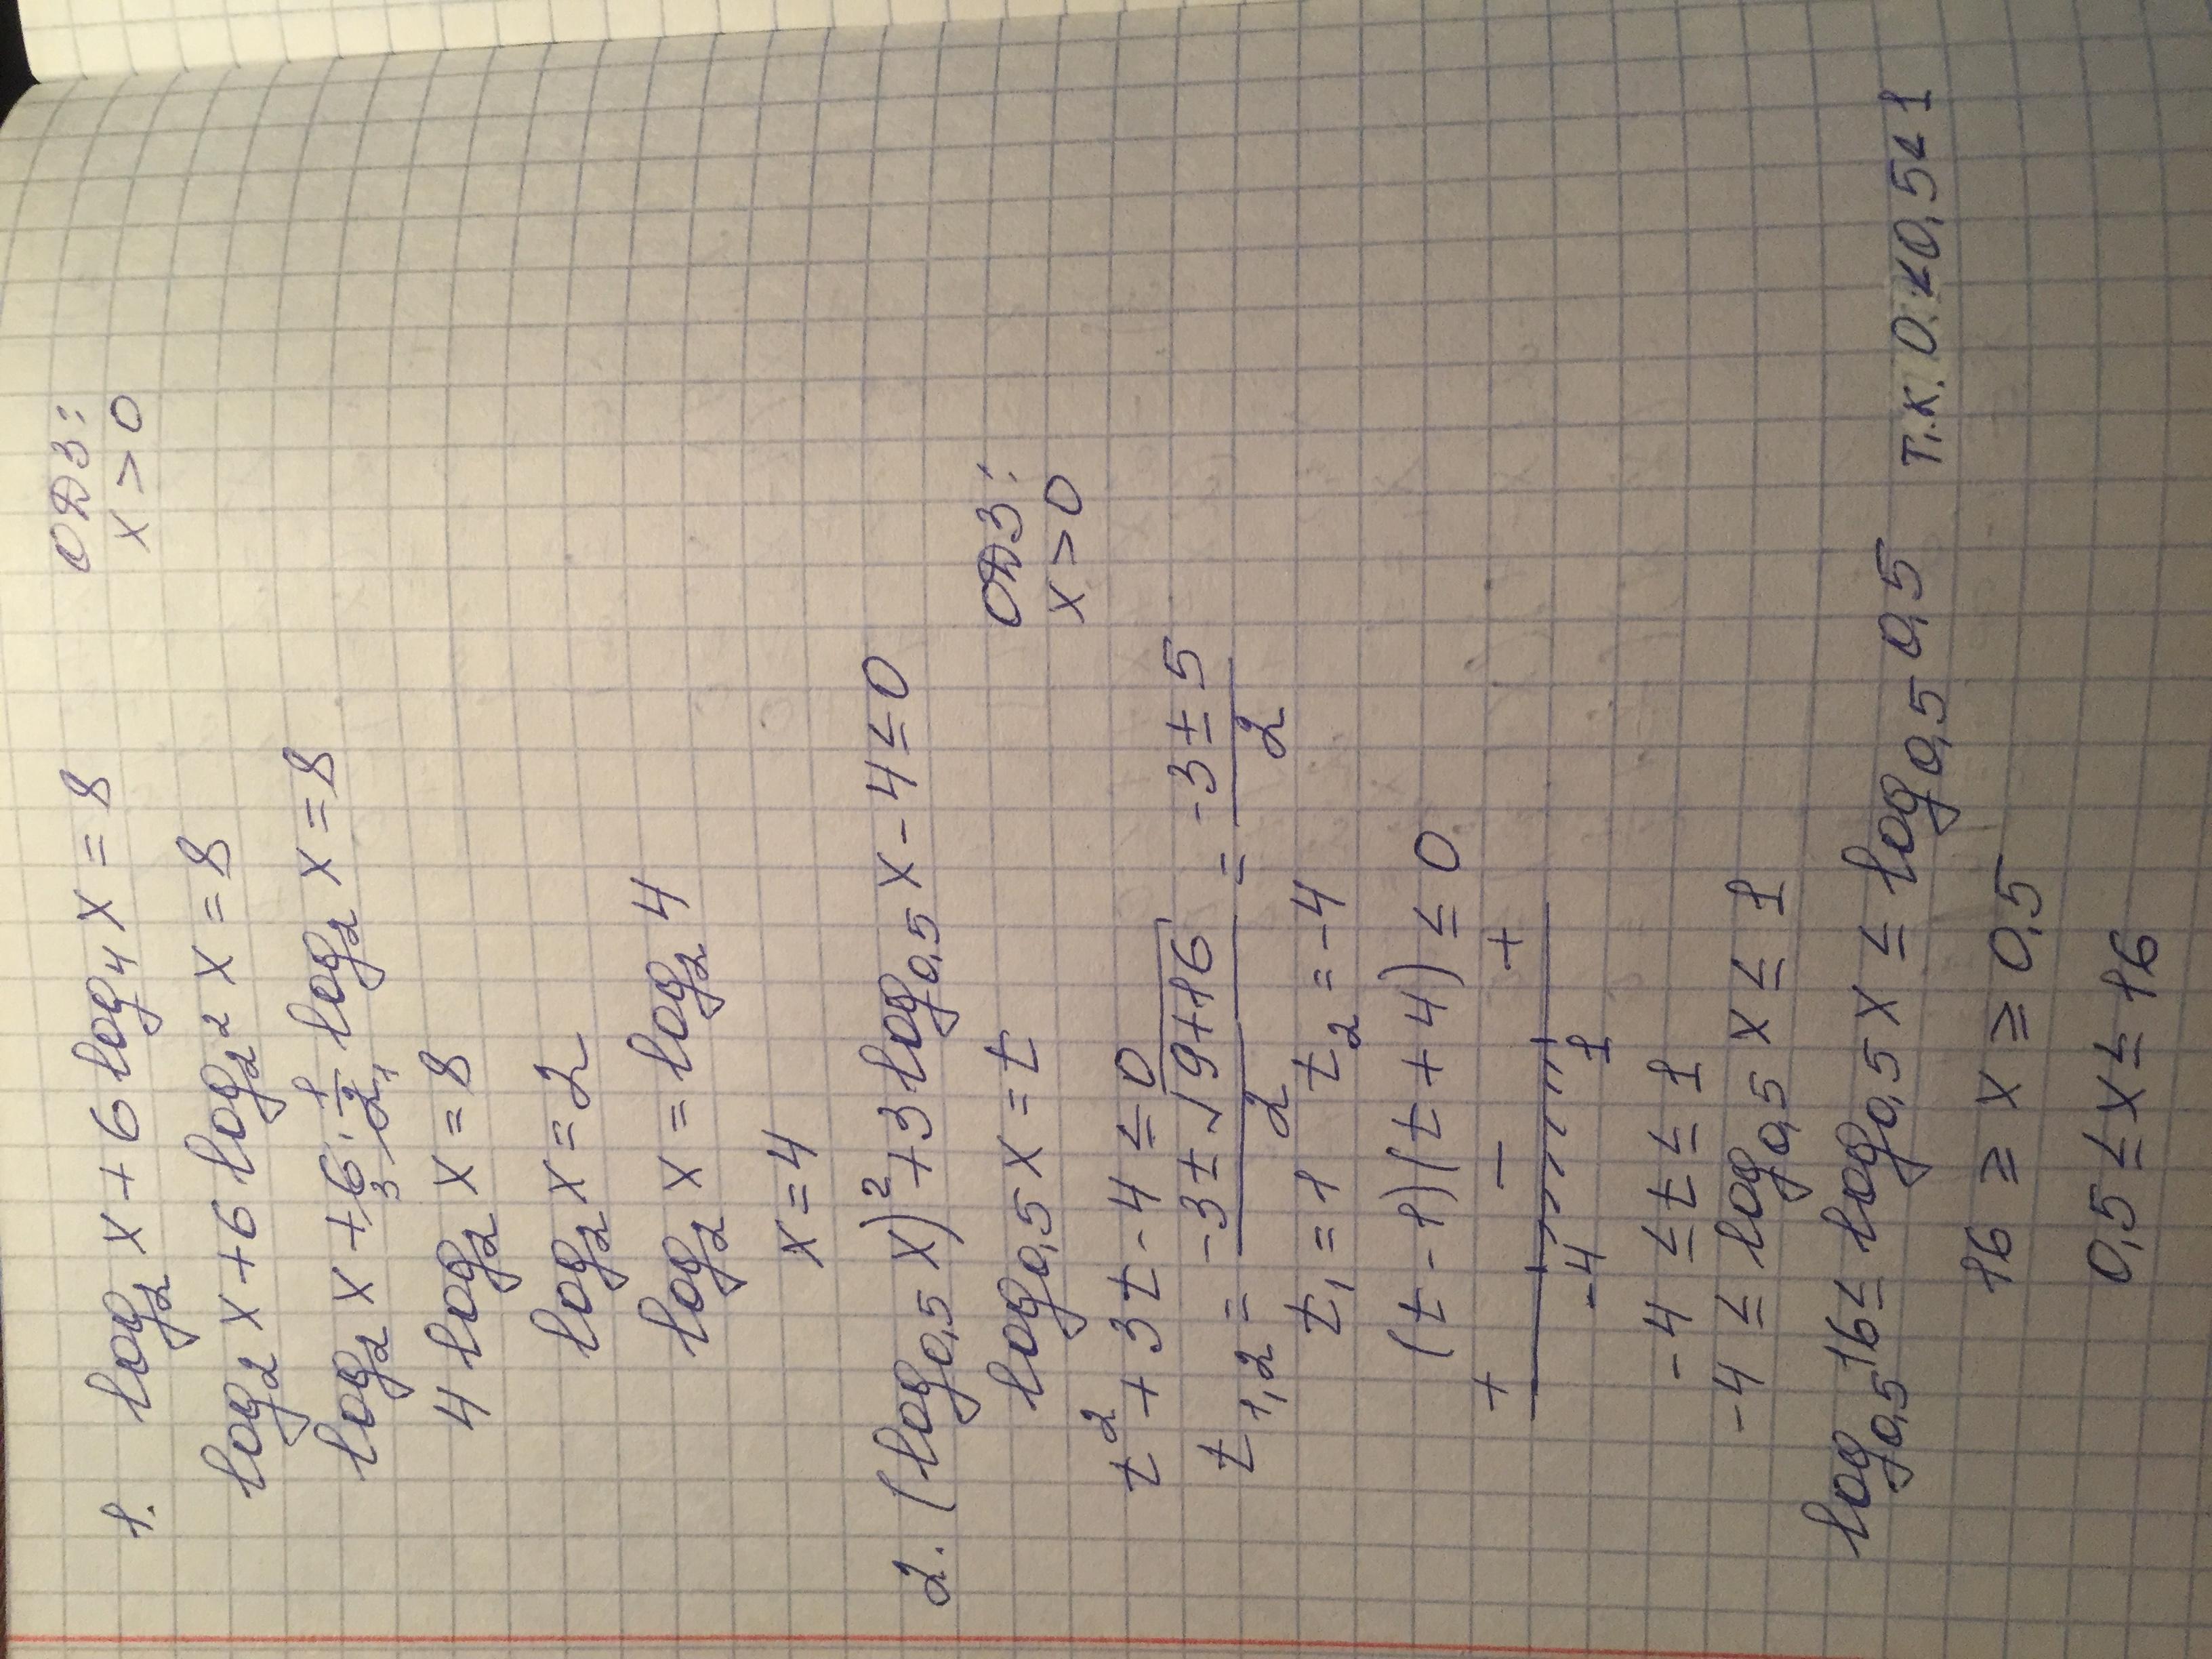 1. log₂ x + 6 log₄ x = 8
ОДЗ:
x > 0
log₂ x + 6 log₂² x = 8
log₂ x + 6 · 1/2 log₂ x = 8
3 1
4 log₂ x = 8
log₂ x = 2
log₂ x = log₂ 4
x = 4
2. (log₀,₅ x)² + 3 log₀,₅ x - 4 ≤ 0
ОДЗ:
x > 0
log₀,₅ x = t
t² + 3t - 4 ≤ 0
t₁,₂ = (-3 ± √(9+16))/2 = (-3 ± 5)/2
t₁ = 1 t₂ = -4
(t - 1)(t + 4) ≤ 0
+ - +
-4 1
-4 ≤ t ≤ 1
-4 ≤ log₀,₅ x ≤ 1
log₀,₅ 16 ≤ log₀,₅ x ≤ log₀,₅ 0,5 т.к. 0 < 0,5 < 1
16 ≥ x ≥ 0,5
0,5 ≤ x ≤ 16